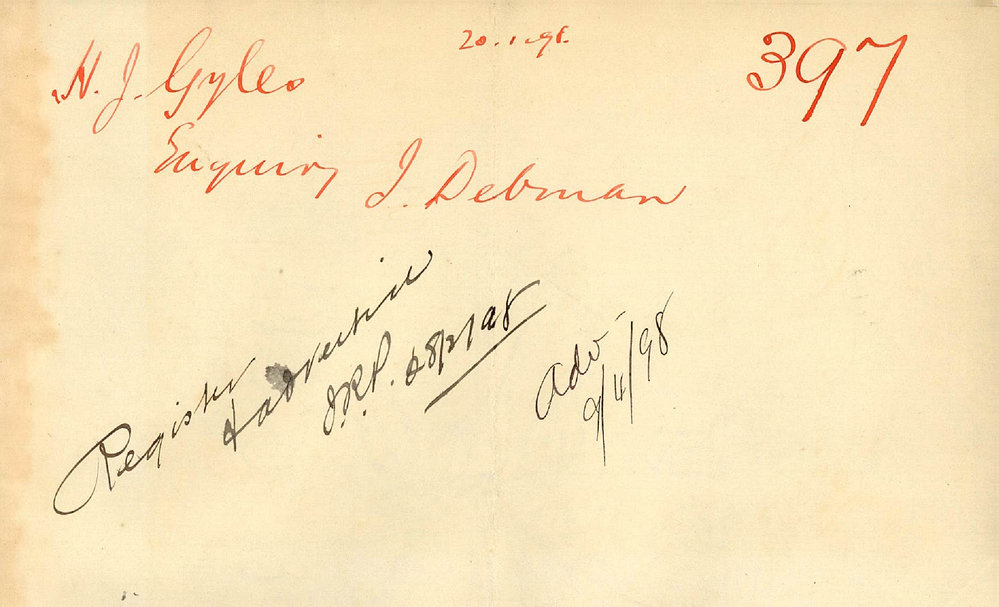 20.1.98.
397
H. J. Gyles
Enquiry J. Debman
Register
& advertise
J.R.P. 28/2/98
Adv.
2/4/98